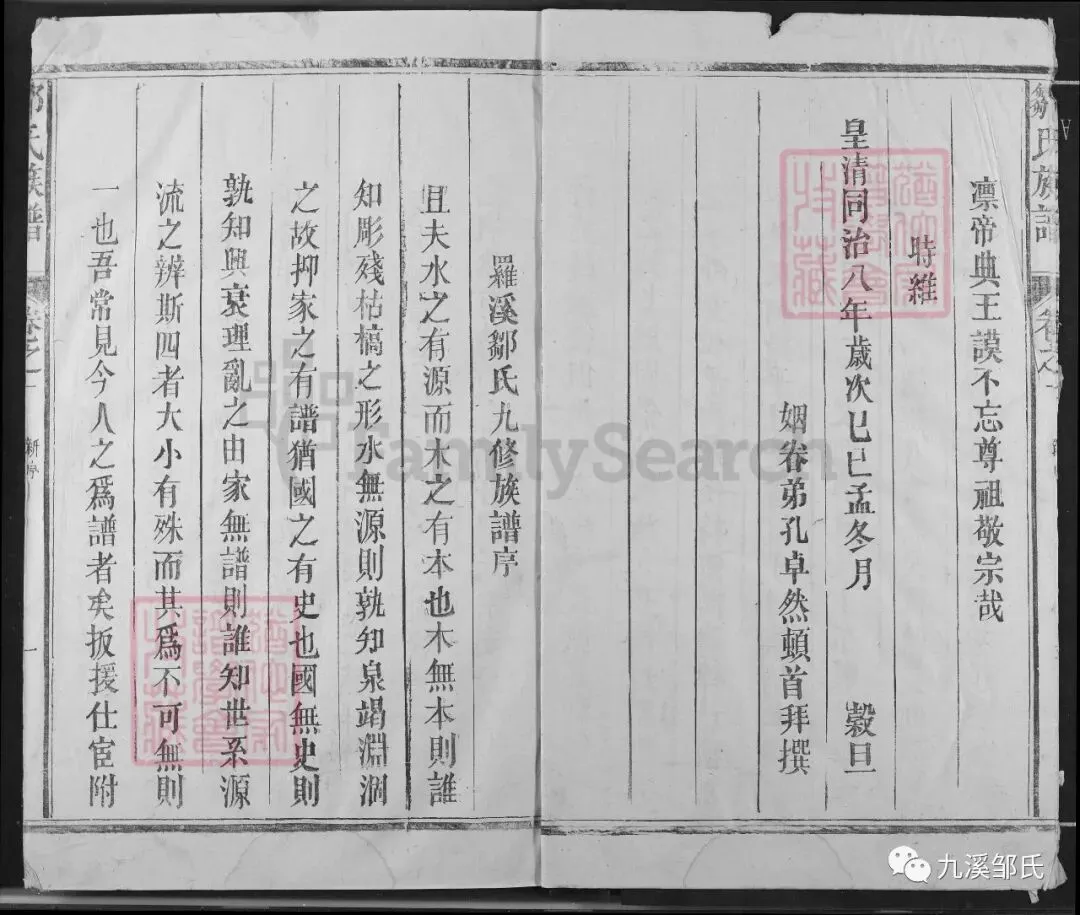 鄒氏族譜
卷之一
凛帝典王謨不忘尊祖敬宗哉
時維
皇清同治八年歲次己巳孟冬月 穀旦
姻眷弟孔卓然頓首拜撰
羅溪鄒氏九修族譜序
且夫水之有源而木之有本也木無本則誰
知彫殘枯槁之形水無源則孰知泉竭淵涸
之故抑家之有譜猶國之有史也國無史則
孰知興衰理亂之由家無譜則誰知世系源
流之辨斯四者大小有殊而其爲不可無則
一也吾常見今人之爲譜者矣扳援仕宦附
鄒氏族譜
卷之一
新序
一
FamilySearch
九溪邹氏